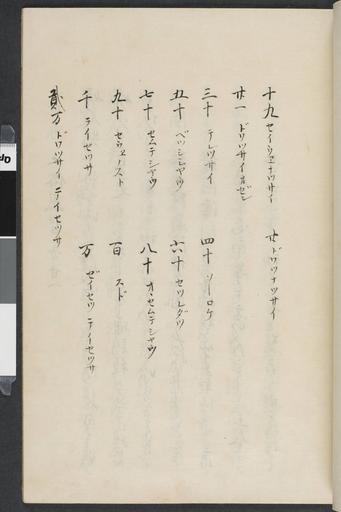 十九 セイウヱナツサイ
廿 ドワツナツサイ
廿一 ドワツサイオゼン
三十 テレツサイ
四十 ソーロケ
五十 ペツシシヤツ
六十 セツレダツ
七十 セムテシヤツ
八十 オ、セムテシヤツ
九十 セウヱノスト
百 スド
千 テイセツサ
万 ゼイセツ テイセツサ
貳万 ドワツサイ テイセツサ